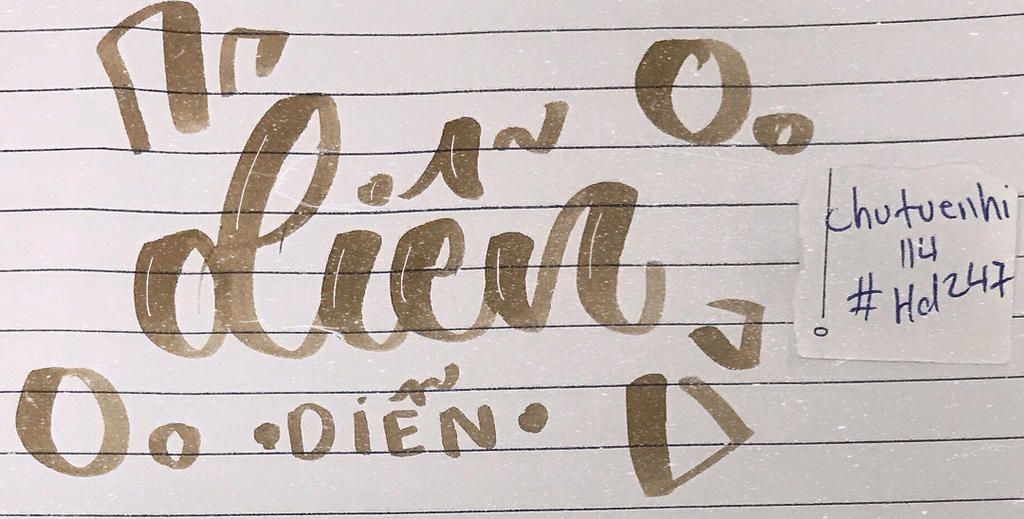 diễn
chutuenhi
114
#Hd247
DIỄN